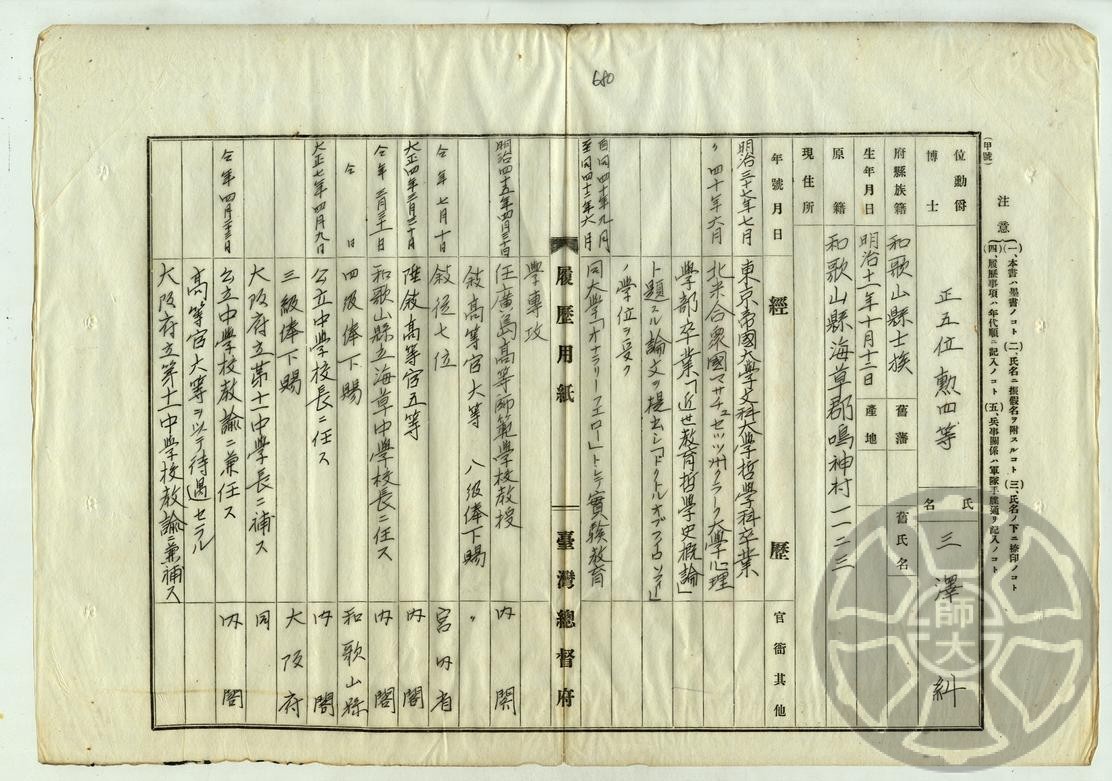 680
(甲號)
注意
(一)、本書ハ墨書ノコト (二)、氏名ニ振假名ヲ附スルコト (三)、氏名ノ下ニ捺印ノコト
(四)、履歷事項ハ年代順ニ記入ノコト (五)、兵事關係ハ軍隊手牒通リ記入ノコト
位勳爵 正五位 勲四等
博士
氏名 三澤 糾
府縣族籍 和歌山縣士族 舊藩 舊氏名
生年月日 明治十一年十月十二日 產地
原籍 和歌山縣海草郡鳴神村一一二三
現住所
年號月日 經歷 官衙其他
明治三十七年七月 東京帝國大學文科大學哲學科卒業
〃 四十年六月 北米合衆國マサチュセッツ州クラーク大學心理
學部卒業「近世教育哲學史概論」
ト題スル論文ヲ提出シ「ドクトルオブフィロソフィ」
ノ學位ヲ受ク
自同四十年九月 至同四十二年六月 同大學「オナラリーフエロー」トシテ實驗教育
學専攻
履歷用紙 臺灣總督府
明治四十五年四月三十日 任廣島高等師範學校教授 内閣
敍高等官六等 八級俸下賜 〃
仝年七月十日 敍從七位 宮内省
大正四年三月三十日 陞敍高等官五等 内閣
仝年三月三十一日 和歌山縣立海草中學校長ニ任ス 内閣
仝日 四級俸下賜 和歌山縣
大正七年四月九日 公立中學校長ニ任ス 内閣
三級俸下賜 大阪府
大阪府立第十一中學長ニ補ス 同
仝年四月二十三日 公立中學校教諭ニ兼任ス 内閣
高等官六等ヲ以テ待遇セラル
大阪府立第十一中學校教諭ニ兼補ス
師大